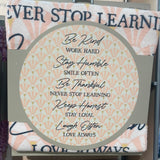 NEVER STOP LEARNING
Be Kind
WORK HARD
Stay Humble
SMILE OFTEN
Be Thankful
NEVER STOP LEARNING
Keep Honest
STAY LOYAL
Laugh Often
LOVE ALWAYS